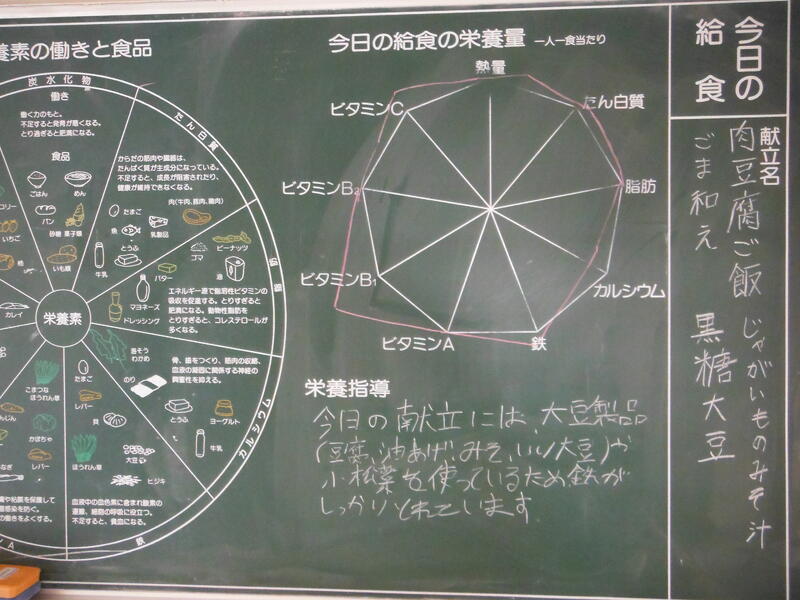 養素の働きと食品
炭水化物
働き
働く力のもと。
不足すると発育が悪くなる。
とり過ぎると肥満になる。
食品
ごはん
めん
パン
砂糖 菓子類
いちご
いも類
たん白質
からだの筋肉や臓器は、
たんぱく質が主成分になっている。
不足すると、成長が阻害されたり、
健康が維持できなくなる。
肉(牛肉、豚肉、鶏肉)
たまご
魚
乳製品
とうふ
牛乳
脂肪
ゴマ
ピーナッツ
バター
油
マヨネーズ
ドレッシング
エネルギー源で脂溶性ビタミンの
吸収を促進する。とりすぎると
肥満になる。動物性脂肪を
とりすぎると、コレステロールが
多くなる。
栄養素
カレイ
カルシウム
骨、歯をつくり、筋肉の収縮、
血液の凝固に関係する神経の
興奮性を抑える。
わかめ
のり
とうふ
ヨーグルト
牛乳
鉄
たまご
レバー
貝
大豆
ほうれん草
ヒジキ
血液中の血色素に含まれ酸素の
運搬、細胞の呼吸に役立つ。
不足すると、貧血になる。
こまつな
ほうれん草
かぼちゃ
レバー
膚や粘膜を保護して
感染を防ぐ。
の働きをよくする。
今日の給食の栄養量 一人一食当たり
熱量
たん白質
脂肪
カルシウム
鉄
ビタミンA
ビタミンB1
ビタミンB2
ビタミンC
栄養指導
今日の献立には、大豆製品
(豆腐、油あげ、みそ、いり大豆)や
小松菜を使っているため鉄が
しっかりとれています。
今日の
給食
献立名
肉豆腐ご飯 じゃがいものみそ汁
ごま和え 黒糖大豆